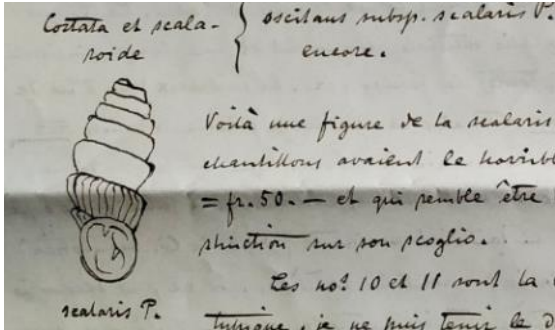 Costata et scala-
roide
{ oscitans subsp. scalaris P.
encore.
Voilà une figure de la scalaris
chantillons avaient le horrible
= fr. 50. — et qui semble être
stinction sur son scoglio.
Les no? 10 et 11 sont la
scalaris P.
tubrique, je ne puis tenir le